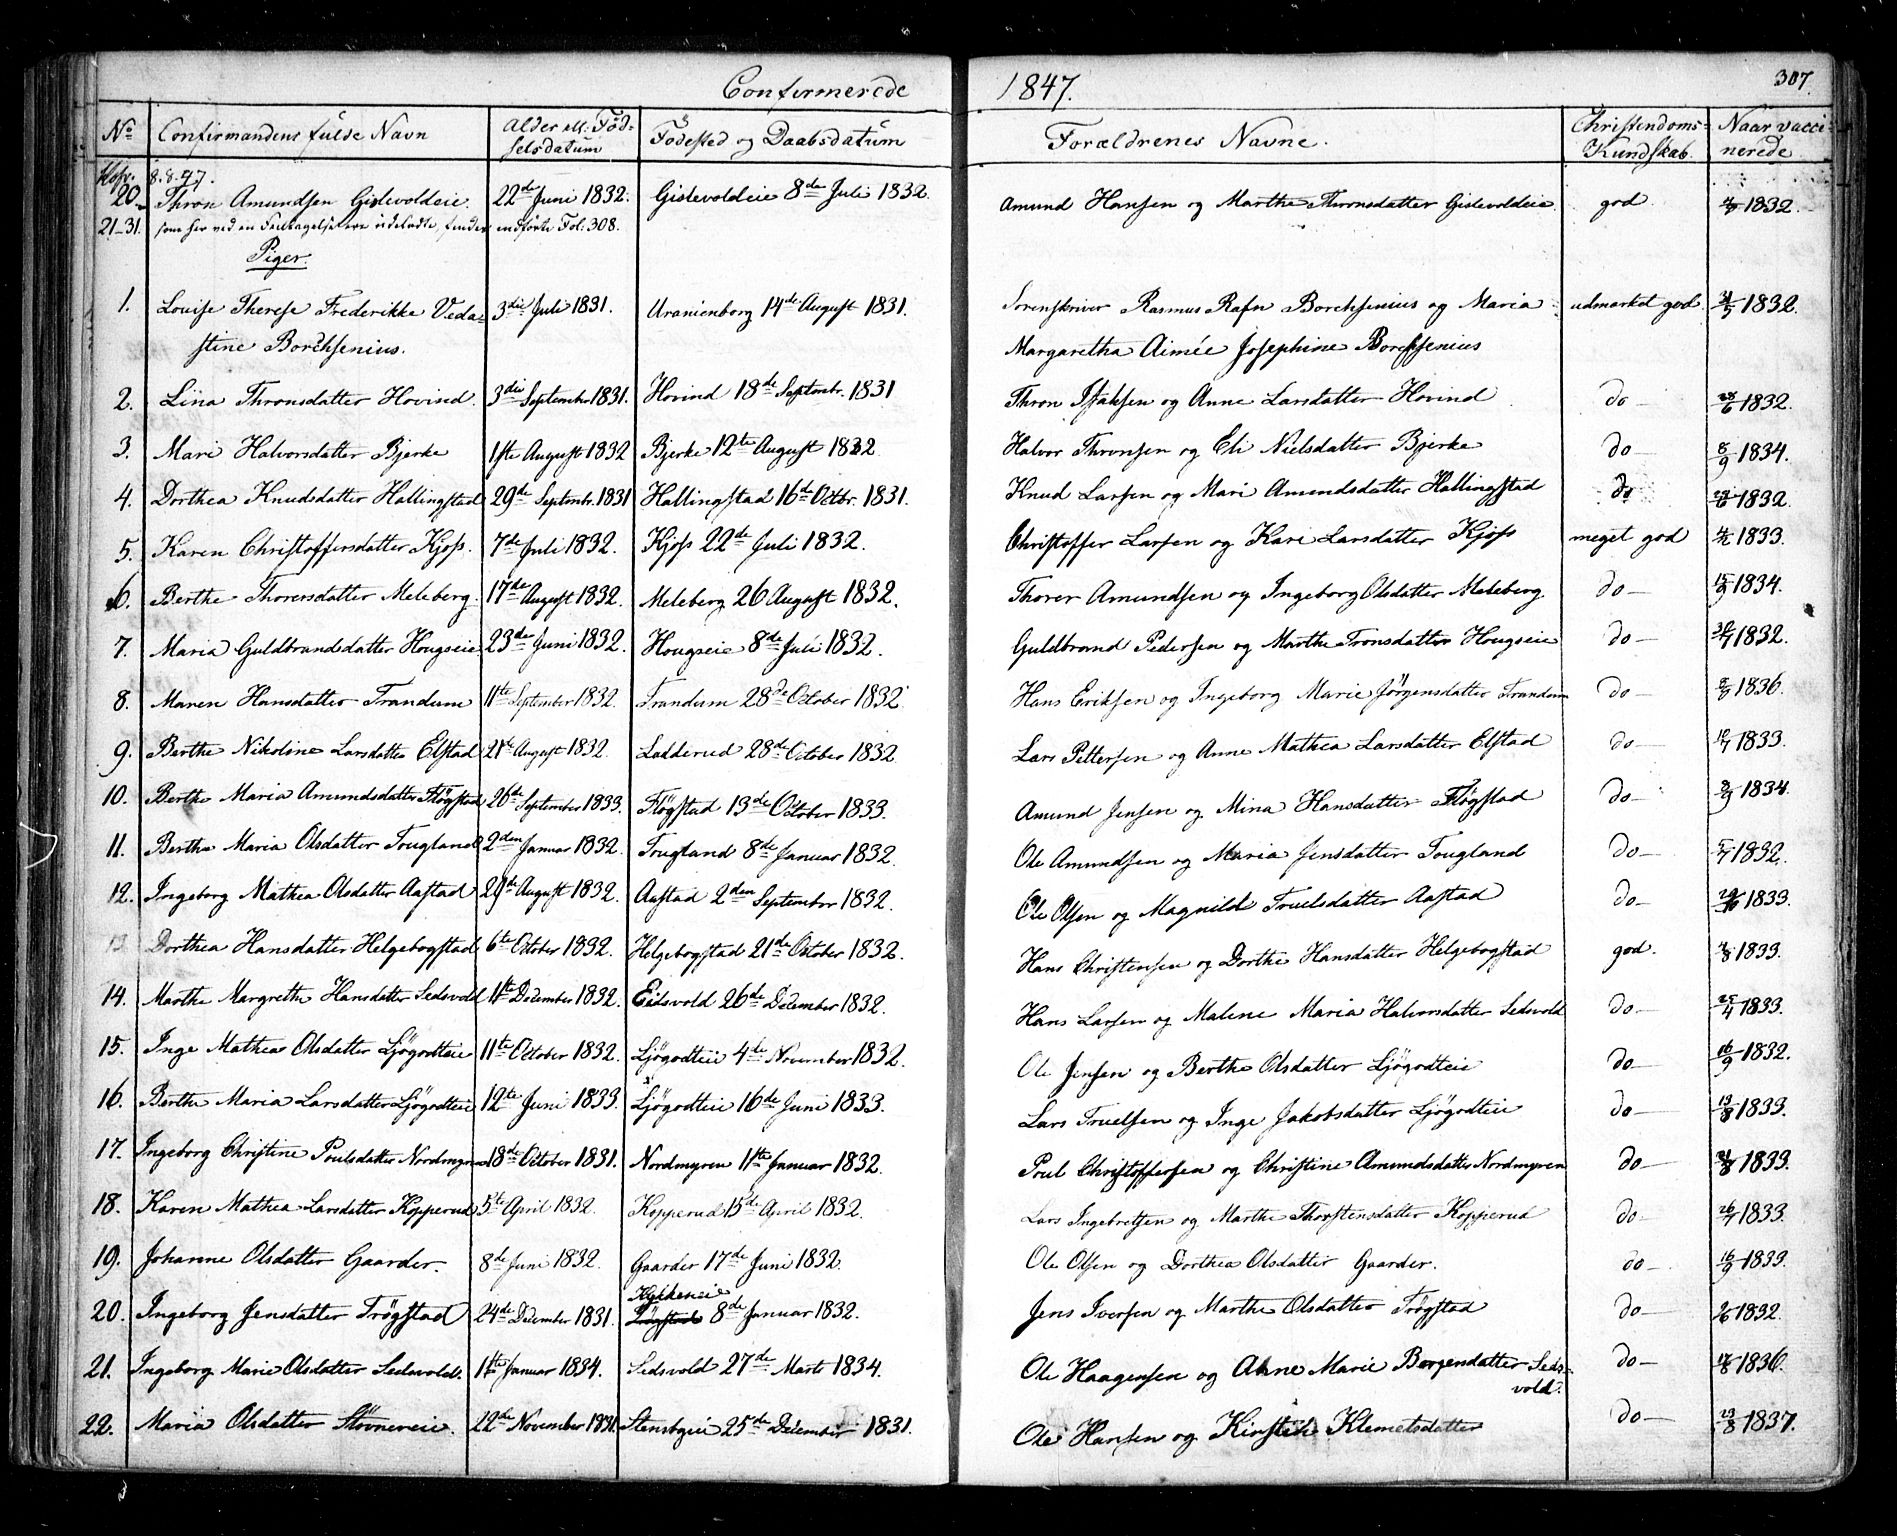 Confirmerede 1847. 307.
No Confirmandens fulde Navn Alder ell. Föd- Födested og Daabsdatum Forældrenes Navne. Christendoms- Naar vacci-
selsdatum Kundskab. nerede
8.8.47.
20. Thron Amundsen Gislevoldeie. 22de Juni 1832. Gislevoldeie 8de Juli 1832. Amund Hansen og Marthe Thronsdatter Gislevoldeie god 1832.
21-31. som her ved en Feiltagelse ere udeladte, findes indförte Fol. 308.
Piger.
1. Louise Therese Frederikke Veda- 3die Juli 1831. Uranienborg 14de August 1831. Sorenskriver Rasmus Rafn Borchsenius og Maria udmærket god. 31/5 1832.
stine Borchsenius. Margaretha Aimée Josephine Borchsenius
2. Lina Thronsdatter Hovind. 3die September 1831. Hovind 18de Septembr. 1831 Thron Isaksen og Anne Larsdatter Hovind do 28/6 1832.
3. Mari Halvorsdatter Bjerke 1ste August 1832 Bjerke 12te August 1832 Halvor Thronsen og Eli Nielsdatter Bjerke do 8/9 1834.
4. Dorthea Knudsdatter Hallingstad 29de Septembr. 1831 Hallingstad 16de Octbr. 1831. Knud Larsen og Mari Amundsdatter Hallingstad do 1832.
5. Karen Christoffersdatter Kjoss. 7de Juli 1832. Kjoss 22de Juli 1832. Christoffer Larsen og Kari Larsdatter Kjoss meget god 1833.
6. Berthe Thorersdatter Meleberg. 17de August 1832. Meleberg 26 August 1832. Thorer Amundsen og Ingeborg Olsdatter Meleberg do 15/9 1834.
7. Maria Guldbrandsdatter Hougseie 23de Juni 1832. Hougseie 8de Juli 1832. Guldbrand Pedersen og Marthe Tronsdatter Hougseie do 1832.
8. Maren Hansdatter Trandum 11te September 1832. Trandum 28de October 1832. Hans Eriksen og Ingeborg Marie Jörgensdatter Trandum do 1836.
9. Berthe Nikoline Larsdatter Elstad 21de August 1832. Ladderud 28de October 1832. Lars Pettersen og Anne Mathea Larsdatter Elstad do 1833.
10. Berthe Maria Amundsdatter Flögstad 26de September 1833. Flögstad 13de October 1833. Amund Jensen og Mina Hansdatter Flögstad do 8/9 1834.
11. Berthe Maria Olsdatter Tougland 2den Januar 1832. Tougland 8de Januar 1832. Ole Amundsen og Maria Jensdatter Tougland do 5/7 1832.
12. Ingeborg Mathea Olsdatter Aastad 29de August 1832. Aastad 2den September 1832. Ole Olsen og Magnild Truelsdatter Aastad do 1833.
13 Dorthea Hansdatter Helgebogstad 6te October 1832. Helgebogstad 21de October 1832. Hans Christensen og Dorthe Hansdatter Helgebogstad god. 1833.
14. Marthe Margrethe Hansdatter Sedsvold 11te December 1832. Eidsvold 26de December 1832. Hans Larsen og Malene Maria Halvorsdatter Sedsvold do 25/4 1833.
15. Inge Mathea Olsdatter Ljögodteie 11te October 1832. Ljögodteie 4de November 1832. Ole Jensen og Berthe Olsdatter Ljögodteie do 16/9 1832.
16. Berthe Maria Larsdatter Ljögodteie 12te Juni 1833. Ljögodteie 16de Juni 1833. Lars Truelsen og Inge Jakobsdatter Ljögodteie do 13/8 1833.
17. Ingeborg Christine Poulsdatter Nordmyren 18de October 1831. Nordmyren 11te Januar 1832. Poul Christoffersen og Christine Amundsdatter Nordmyren do 1833.
18. Karen Mathea Larsdatter Kopperud 5te April 1832. Kopperud 15de April 1832. Lars Ingebretsen og Marthe Thorstensdatter Kopperud do 26/7 1833.
19. Johanne Olsdatter Gaarder. 8de Juni 1832. Gaarder 17de Juni 1832. Ole Olsen og Dorthea Olsdatter Gaarder. do 16/9 1833.
20. Ingeborg Jensdatter Trögstad 24de December 1831. 8de Januar 1832. Jens Iversen og Marthe Olsdatter Trögstad do 1832.
21. Ingeborg Marie Olsdatter Sedsvold. Januar 1834. Sedsvold 27de Marts 1834. Ole Haagensen og Anne Marie Borgensdatter Seds- do 1836.
vold.
22. Maria Olsdatter Stövneveie. 22de November 1831. 25de December 1831. Ole Hansen og Kirstine Klemetsdatter do 23/8 1837.